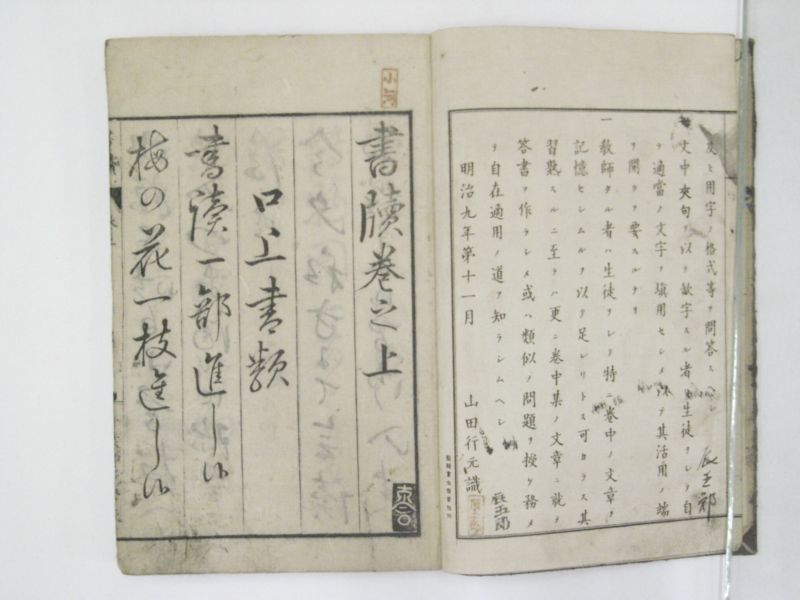 及ヒ用字ノ格式等ヲ問答スヘシ
文中夾句ヲ以テ歓字スル者ハ生徒ヲシテ自
ラ適當ノ文字ヲ塡用セシメ以テ其活用ノ端
ヲ開クヲ要スルナリ
一教師タル者ハ生徒ヲシテ特ニ卷中ノ文章ヲ
記憶セシムルヲ以テ足レリトス可カラス其
習熟スルニ至ラハ更ニ卷中某ノ文章ニ就テ
答書ヲ作ラシメ或ハ類似ノ問題ヲ授ケ務メ
テ自在適用ノ道ヲ知ラシムヘシ
明治九年第十一月 山田行元識
辰五郎
辰五郎
書牘卷之上
口上書類
書牘一部進し候
梅の花一枝進し候